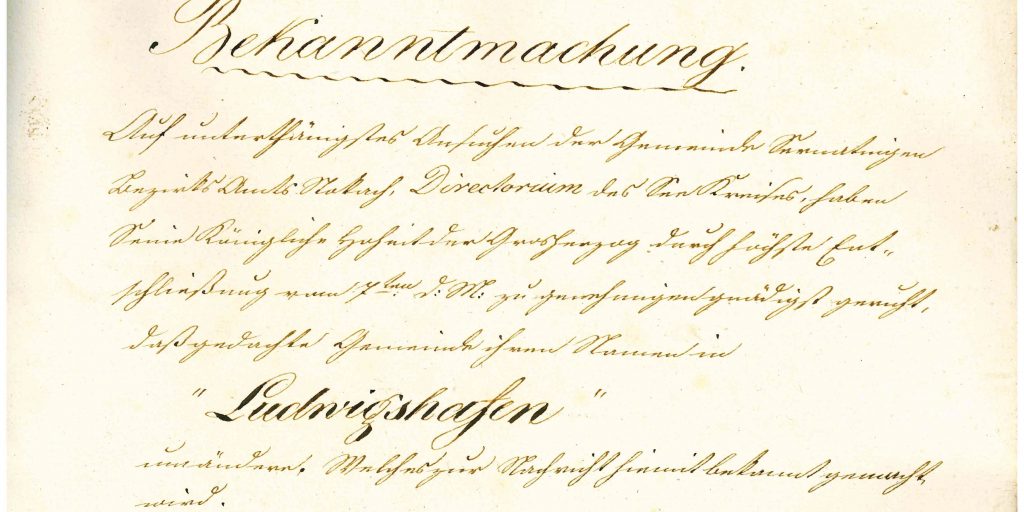 Bekanntmachung.
Auf unterthänigstes Ansuchen der Gemeinde Sernatingen
Bezirks Amts Stokach, Directorium des See Kreises, haben
Seine Königliche Hoheit der Grosherzog durch höchste Ent-
schließung vom 7ten d: M: zu genehmigen gnädigst geruht,
daß gedachte Gemeinde ihren Namen in
"Ludwigshafen"
umändere. Welches zur Nachricht hiemit bekannt gemacht
wird.